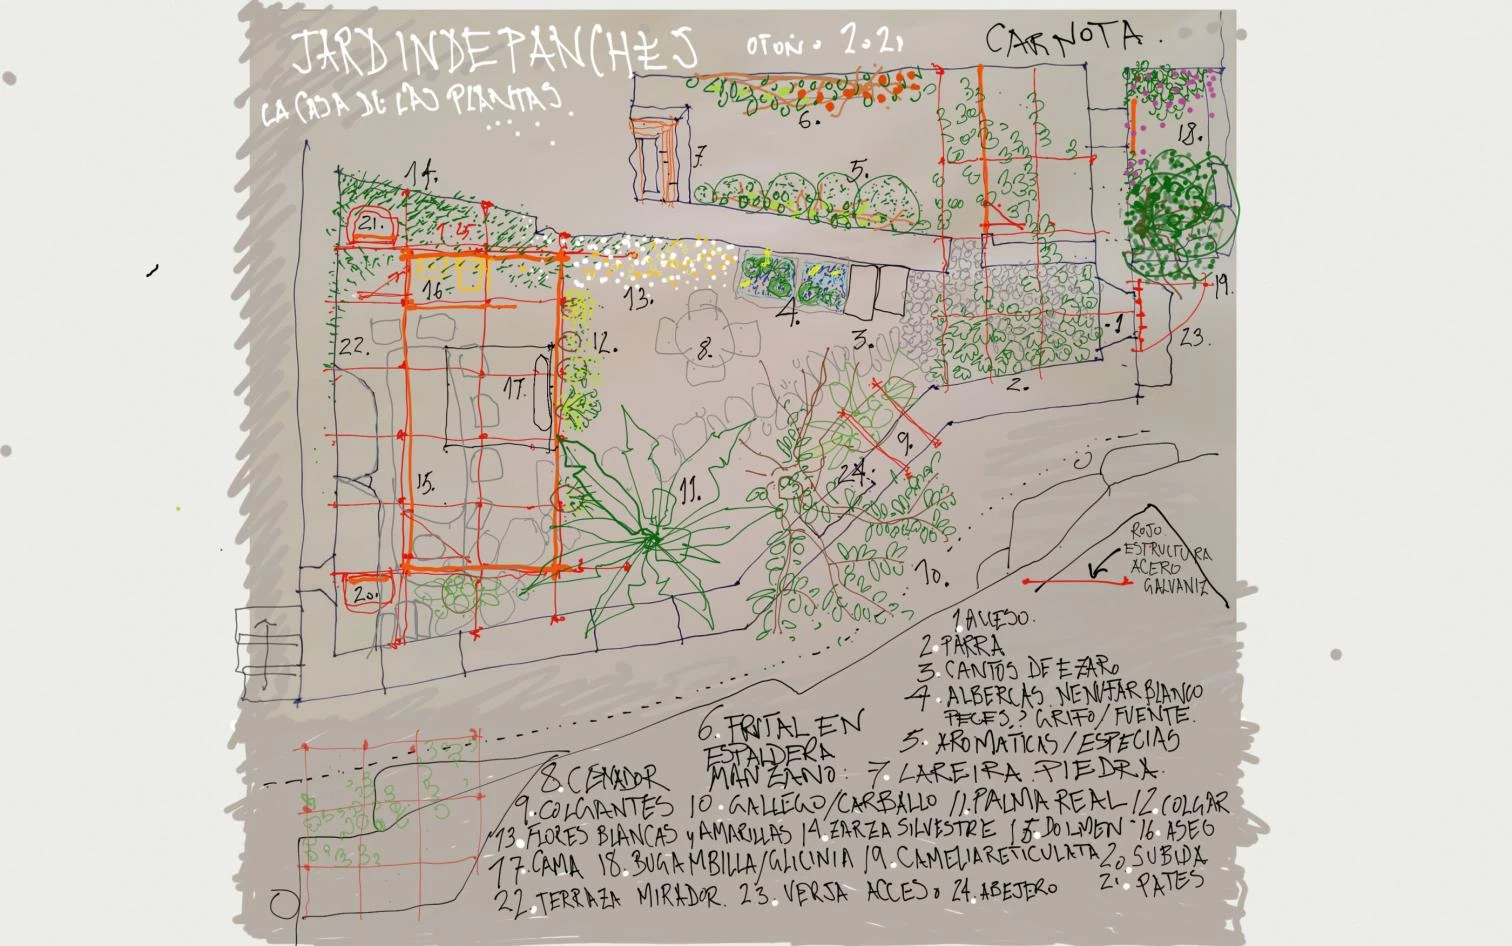 JARDIN DE PANCHES
OTOÑO. 2.21
CARNOTA.
LA CASA DE LAS PLANTAS.
6.
18.
7
5.
14.
21.
1.25
16
13.
4.
19.
22.
12.
8.
3.
.1
23.
17.
2.
9.
15.
11.
24.
10.
20.
ROJO
ESTRUCTURA
ACERO
GALVANIZ
1 ACCESO.
2. PARRA
3. CANTOS DE EZARO
4. ALBERCAS. NENUFAR BLANCO
PECES? GRIFO/FUENTE.
5. AROMATICAS/ESPECIAS
6. FRUTAL EN
ESPALDERA
MANZANO.
7. LAREIRA PIEDRA.
8. CENADOR
9. COLGANTES 10. GALLEGO/CARBALLO 11. PALMA REAL 12. COLGAR
13. FLORES BLANCAS y AMARILLAS 14. ZARZA SILVESTRE 15. DOLMEN 16. ASEO
17. CAMA 18. BUGAMBILLA/GLICINIA 19. CAMELIA RETICULATA 20. SUBIDA
21. PATES
22. TERRAZA MIRADOR. 23. VERJA ACCESO 24. ABEJERO